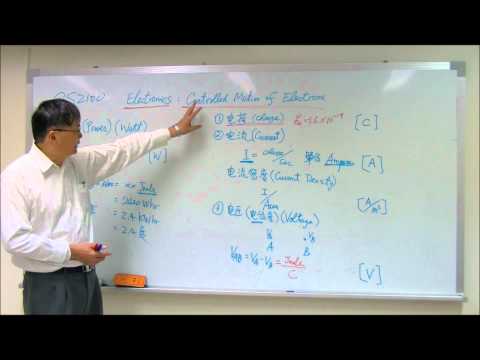 Electronics : Controlled Motion of Electrons
(Power) (Watt)
[W]
= 2400 Whr
= 2.4 kWhr
= 2.4 度
① 电荷 (charge)
[C]
② 电流 (Current)
I = charge/sec 單位 Ampere [A]
电流密度 (Current Density)
I/Area [A/m²]
(Voltage)
V_A V_B
A B
V_AB = V_A - V_B = Joule/C [V]